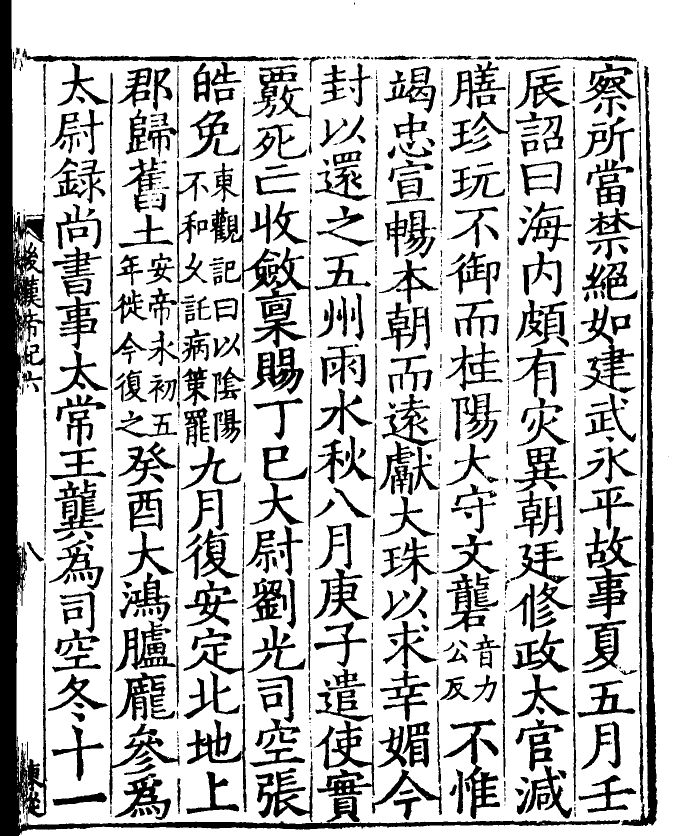 察所當禁絕如建武永平故事夏五月壬
辰詔曰海内頗有灾異朝廷修政太官減
膳珍玩不御而桂陽大守文礱音力公反不惟
竭忠宣暢本朝而遠獻大珠以求幸媚今
封以還之五州雨水秋八月庚子遣使實
覈死亡收斂稟賜丁巳大尉劉光司空張
皓免東觀記曰以陰陽不和久託病策罷九月復安定北地上
郡歸舊土安帝永初五年徙今復之癸酉大鴻臚龐參爲
太尉録尚書事太常王龔爲司空冬十一
後漢帝紀六
八